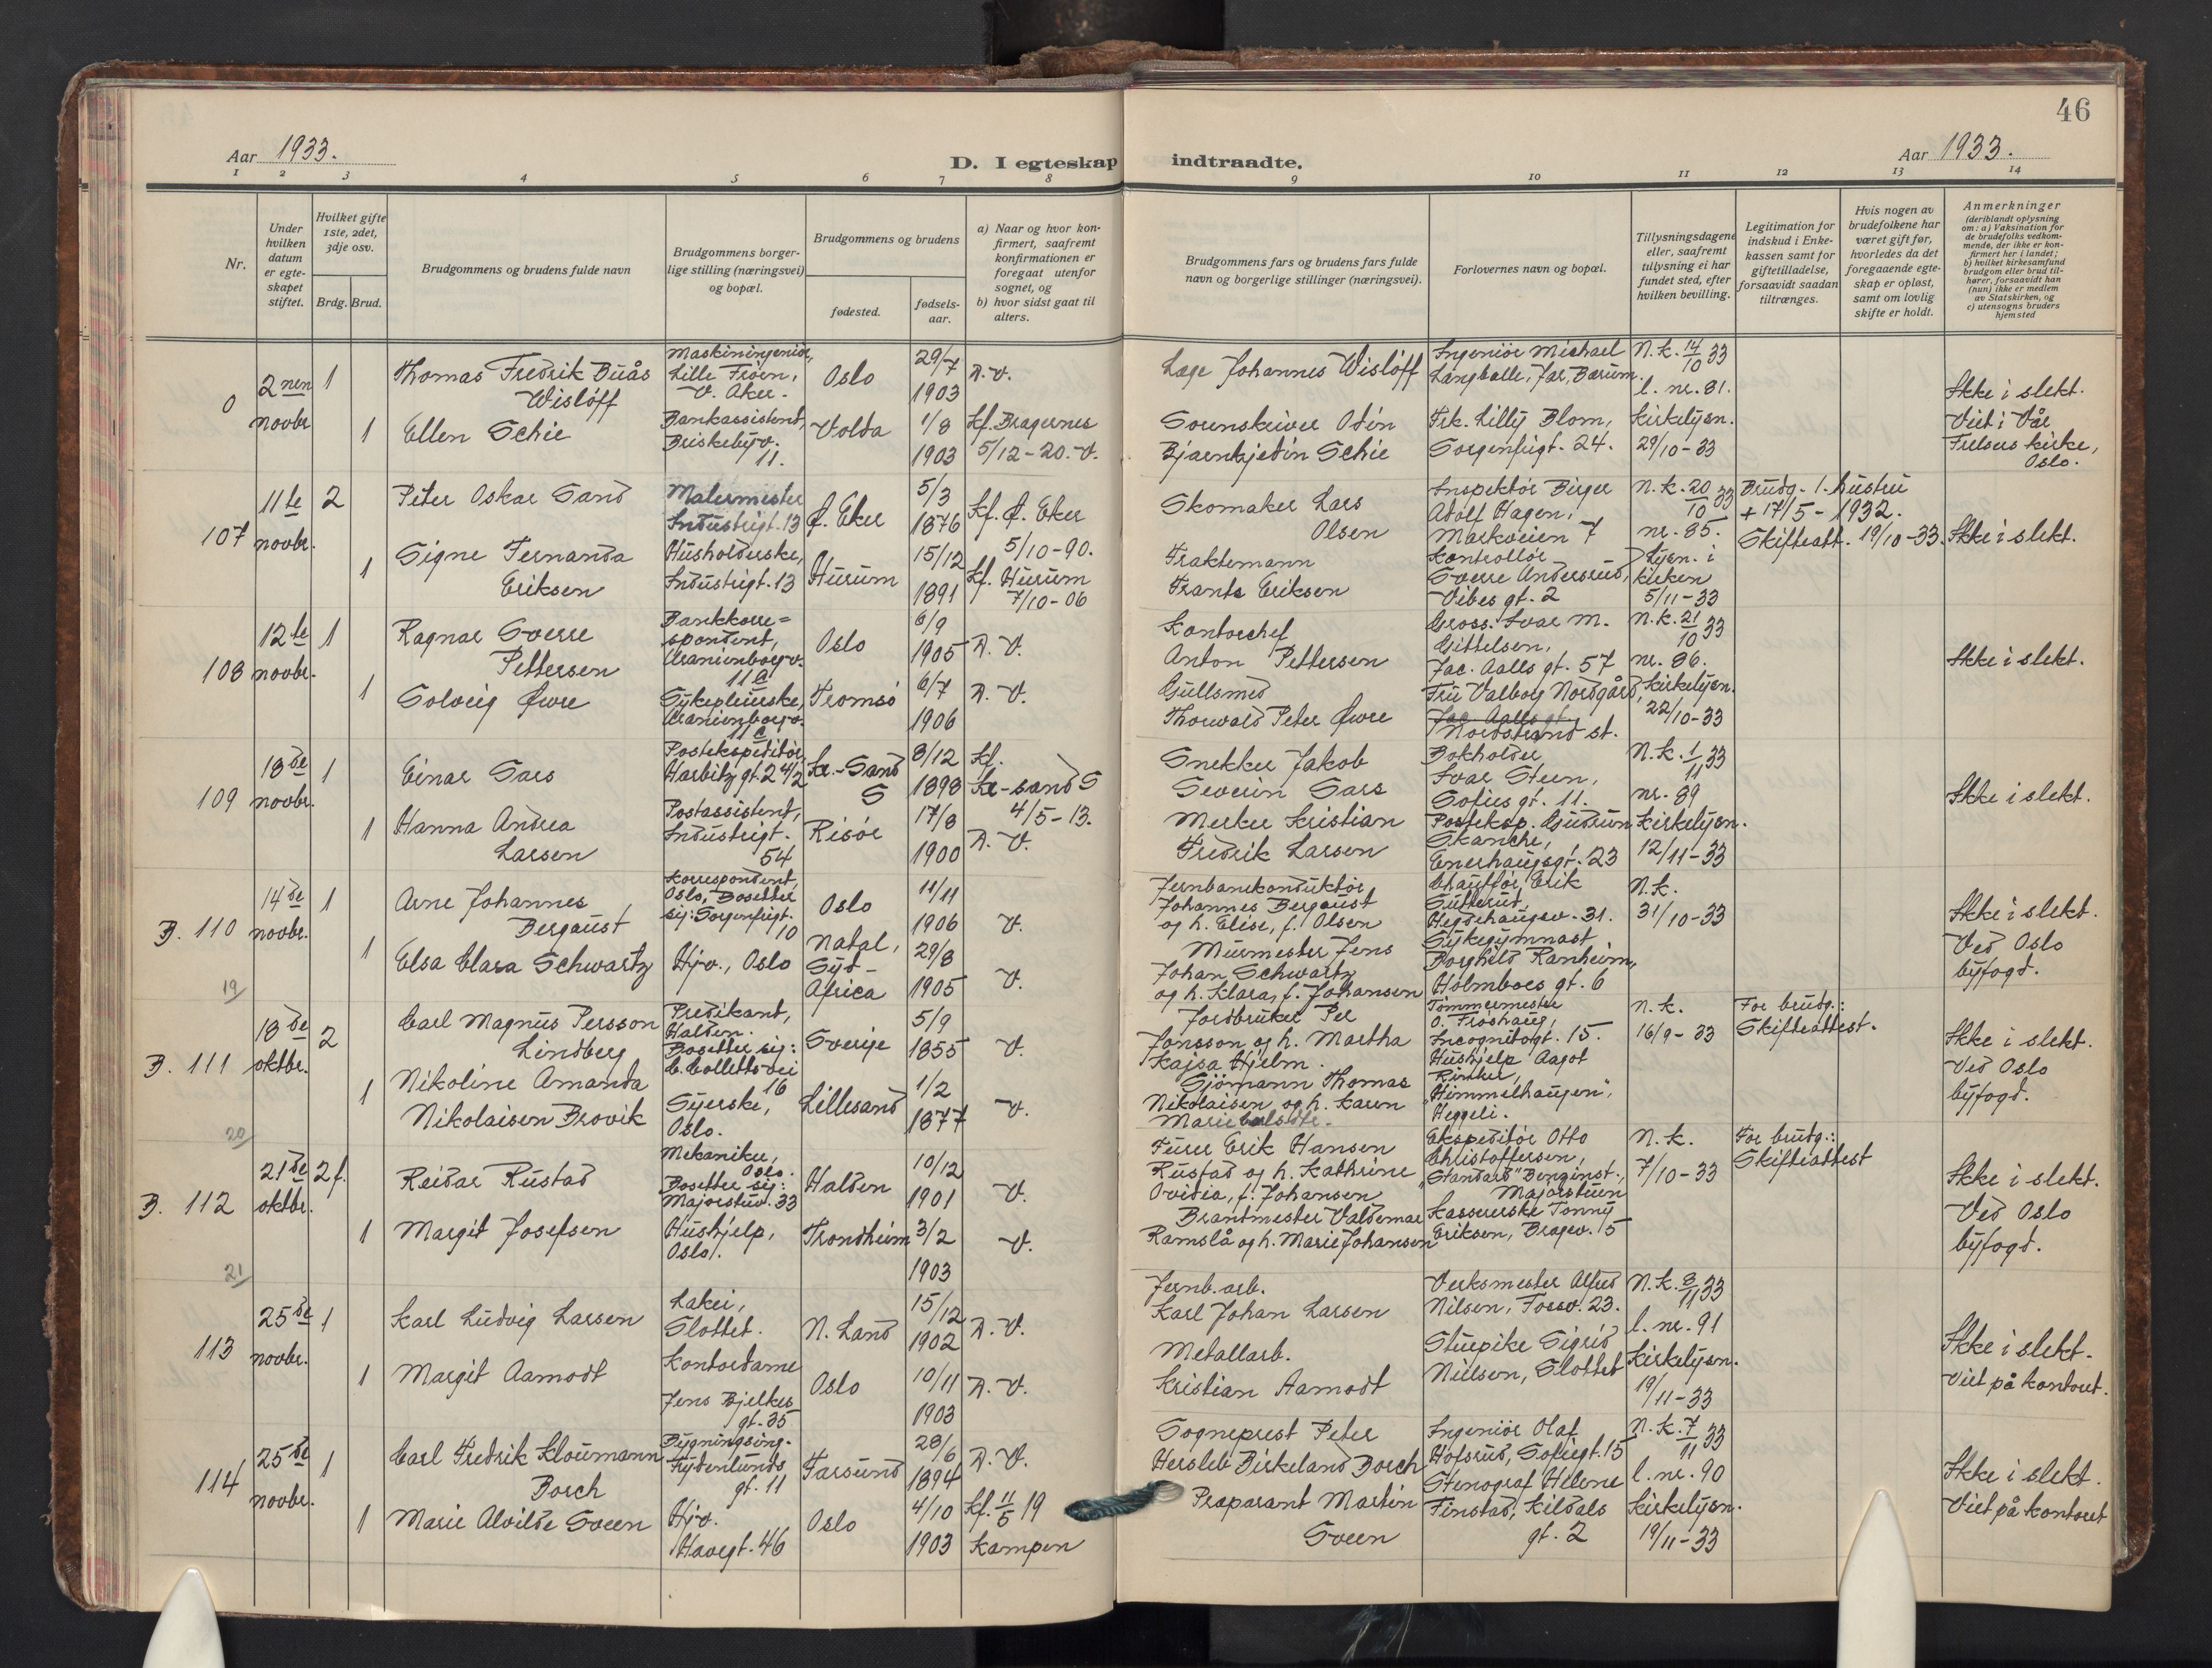 46
Aar 1933.
D. I egteskap indtraadte.
Aar 1933.
1 2 3 4 5 6 7 8 9 10 11 12 13 14
Nr.
Under hvilken datum er egteskapet stiftet.
Hvilket gifte 1ste, 2det, 3dje osv.
Brdg. Brud.
Brudgommens og brudens fulde navn
Brudgommens borgerlige stilling (næringsvei) og bopæl.
Brudgommens og brudens
fødested.
fødselsaar.
a) Naar og hvor konfirmert, saafremt konfirmationen er foregaat utenfor sognet, og
b) hvor sidst gaat til alters.
Brudgommens fars og brudens fars fulde navn og borgerlige stillinger (næringsvei).
Forlovernes navn og bopæl.
Tillysningsdagene eller, saafremt tillysning ei har fundet sted, efter hvilken bevilling.
Legitimation for indskud i Enkekassen samt for giftetilladelse, forsaavidt saadan tiltrænges.
Hvis nogen av brudefolkene har været gift før, hvorledes da det foregaaende egteskap er opløst, samt om lovlig skifte er holdt.
Anmerkninger
(deriblandt oplysning om: a) Vaksination for de brudefolks vedkommende, der ikke er konfirmert her i landet; b) hvilket kirkesamfund brudgom eller brud tilhører, forsaavidt han (hun) ikke er medlem av Statskirken, og c) utensogns bruders hjemsted
0
2nen novbr.
1
Thomas Fredrik Buås Wisløff
Maskiningeniør, Lille Frøen, V. Aker.
Oslo
29/7 1903
D. V.
Læge Johannes Wisløff
Ingeniør Michael Langballe, Jar, Bærum.
N. k. 14/10 33
l. nr. 81.
Ikke i slekt.
1
Ellen Schie
Bankassistent, Briskebyv. 11.
Volda
1/8 1903
Kf. Bragernes 5/12-20. V.
Sorenskriver Odin Bjarnhjedin Schie
Frk. Lilly Blom, Sorgenfrigt. 24.
Kirkelysn. 29/10-33
Viet i Vår Frelsers kirke, Oslo.
107
11te novbr.
2
Peter Oskar Sand
Malermester Industrigt. 13
Ø. Eker
5/3 1876
Kf. Ø. Eker 5/10-90.
Skomaker Lars Olsen
Inspektør Birger Adolf Hagen, Markveien 7
N. k. 20/10 33
nr. 85.
Brudg. 1. hustru + 17/5-1932.
Skifteatt. 19/10-33.
Ikke i slekt.
1
Signe Fernanda Eriksen
Husholderske, Industrigt. 13
Hurum
15/12 1891
Kf. Hurum 7/10-06
Fraktemann Frants Eriksen
Kontrollør Sverre Andersrud, Vibes gt. 2
Lysn. i kirken 5/11-33
108
12te novbr.
1
Ragnar Sverre Pettersen
Bankkorrespondent, Uranienborgv. 11 a
Oslo
6/9 1905
D. V.
Kontorchef Anton Pettersen
Gross. Ivar M. Gittelsen, Jac. Aalls gt. 57
N. k. 21/10 33
nr. 86.
Ikke i slekt.
1
Solveig Øwre
Sykepleierske, Uranienborgv. 11 a
Tromsø
6/7 1906
D. V.
Gullsmed Thorvald Peter Øwre
Fru Valborg Nordgård, Jac. Aalls gt. Nordstrand st.
Kirkelysn. 22/10-33
109
18de novbr.
1
Einar Sars
Postekspeditør, Harbitz gt. 24/2
Kr.-Sand S
8/12 1898
Kf. Kr-sand S 4/5-13.
Snekker Jakob Severin Sars
Bokholder Ivar Steen, Sofies gt. 11.
N. k. 1/11 33
nr. 89
Ikke i slekt.
1
Hanna Andrea Larsen
Postassistent, Industrigt. 54
Risør
17/8 1900
D. V.
Merker Kristian Fredrik Larsen
Posteksp. Gudrun Skanche, Enerhaugsgt. 23
Kirkelysn. 12/11-33
B. 110
14de novbr.
1
Arne Johannes Bergaust
Korrespondent, Oslo, Bosetter sig: Sorgenfrigt. 10
Oslo
11/11 1906
V.
Jernbanekonduktør Johannes Bergaust og h. Elise, f. Olsen
Chauffør Erik Sutterud, Hegdehaugsv. 31.
N. k. 31/10-33
Ikke i slekt.
1
Elsa Clara Schwartz
Hjv., Oslo
Natal, Syd-Africa
29/8 1905
V.
Murmester Jens Johan Schwartz og h. Klara, f. Johansen
Sykegymnast Borghild Ranheim, Holmboes gt. 6
Ved Oslo byfogd.
19/
B. 111
18de oktbr.
2
Carl Magnus Persson Lindberg
Predikant, Halden. Bosetter sig: C. Colletts vei 16
Sverige
5/9 1855
V.
Jordbruker Per Jonsson og h. Martha Kajsa Hjelm.
Tømmermester O. Frøshaug, Incognitogt. 15.
N. k. 16/9-33
For brudg.: Skifteattest.
Ikke i slekt.
1
Nikoline Amanda Nikolaisen Brovik
Syerske, Oslo.
Lillesand
1/2 1877
V.
Sjømann Thomas Nikolaisen og h. Karen Marie
Hushjelp Aagot "Himmelhaugen", Heggeli.
Ved Oslo byfogd.
20/
B. 112
21de oktbr.
2 f.
Reidar Rustad
Mekaniker, Oslo. Bosetter sig: Majorstuv. 33
Halden
10/12 1901
V.
Furer Erik Hansen Rustad og h. Kathrine Ovidia, f. Johansen
Ekspeditør Otto Christoffersen, "Standard" Benzinst., Majorstuen
N. k. 7/10-33
For brudg.: Skifteattest
Ikke i slekt.
1
Margit Josefsen
Hushjelp, Oslo.
Trondheim
3/2 1903
V.
Brandmester Valdemar Ramslå og h. Marie Johansen
Kassererske Tonny Eriksen, Bragev. 15
Ved Oslo byfogd.
21/
113
25de novbr.
1
Karl Ludvig Larsen
Lakei, Slottet.
N. Land
15/12 1902
D. V.
Jernb. arb. Karl Johan Larsen
Verksmester Alfred Nilsen, Fossv. 23.
N. k. 8/11 33
l. nr. 91
Ikke i slekt.
1
Margit Aamodt
Kontordame Jens Bjelkes gt. 35
Oslo
10/11 1903
D. V.
Metallarb. Kristian Aamodt
Stuepike Sigrid Nielsen, Slottet
Kirkelysn. 19/11-33
Viet på kontoret.
114
25de novbr.
1
Carl Fredrik Kloumann Borch
Bygningsing. Frydenlunds gt. 11
Farsund
28/6 1894
D. V.
Sogneprest Peter Hersleb Birkeland Borch
Ingeniør Olaf Hofsrud, Sofiesgt. 15
N. k. 7/11 33
l. nr. 90
Ikke i slekt.
1
Marie Alvilde Sveen
Hjv. Havegt. 46
Oslo
4/10 1903
Kf. 11/5 19 Kampen
Preparant Martin Sveen
Stenograf Helene Finstad, Kildals gt. 2
Kirkelysn. 19/11-33
Viet på kontoret